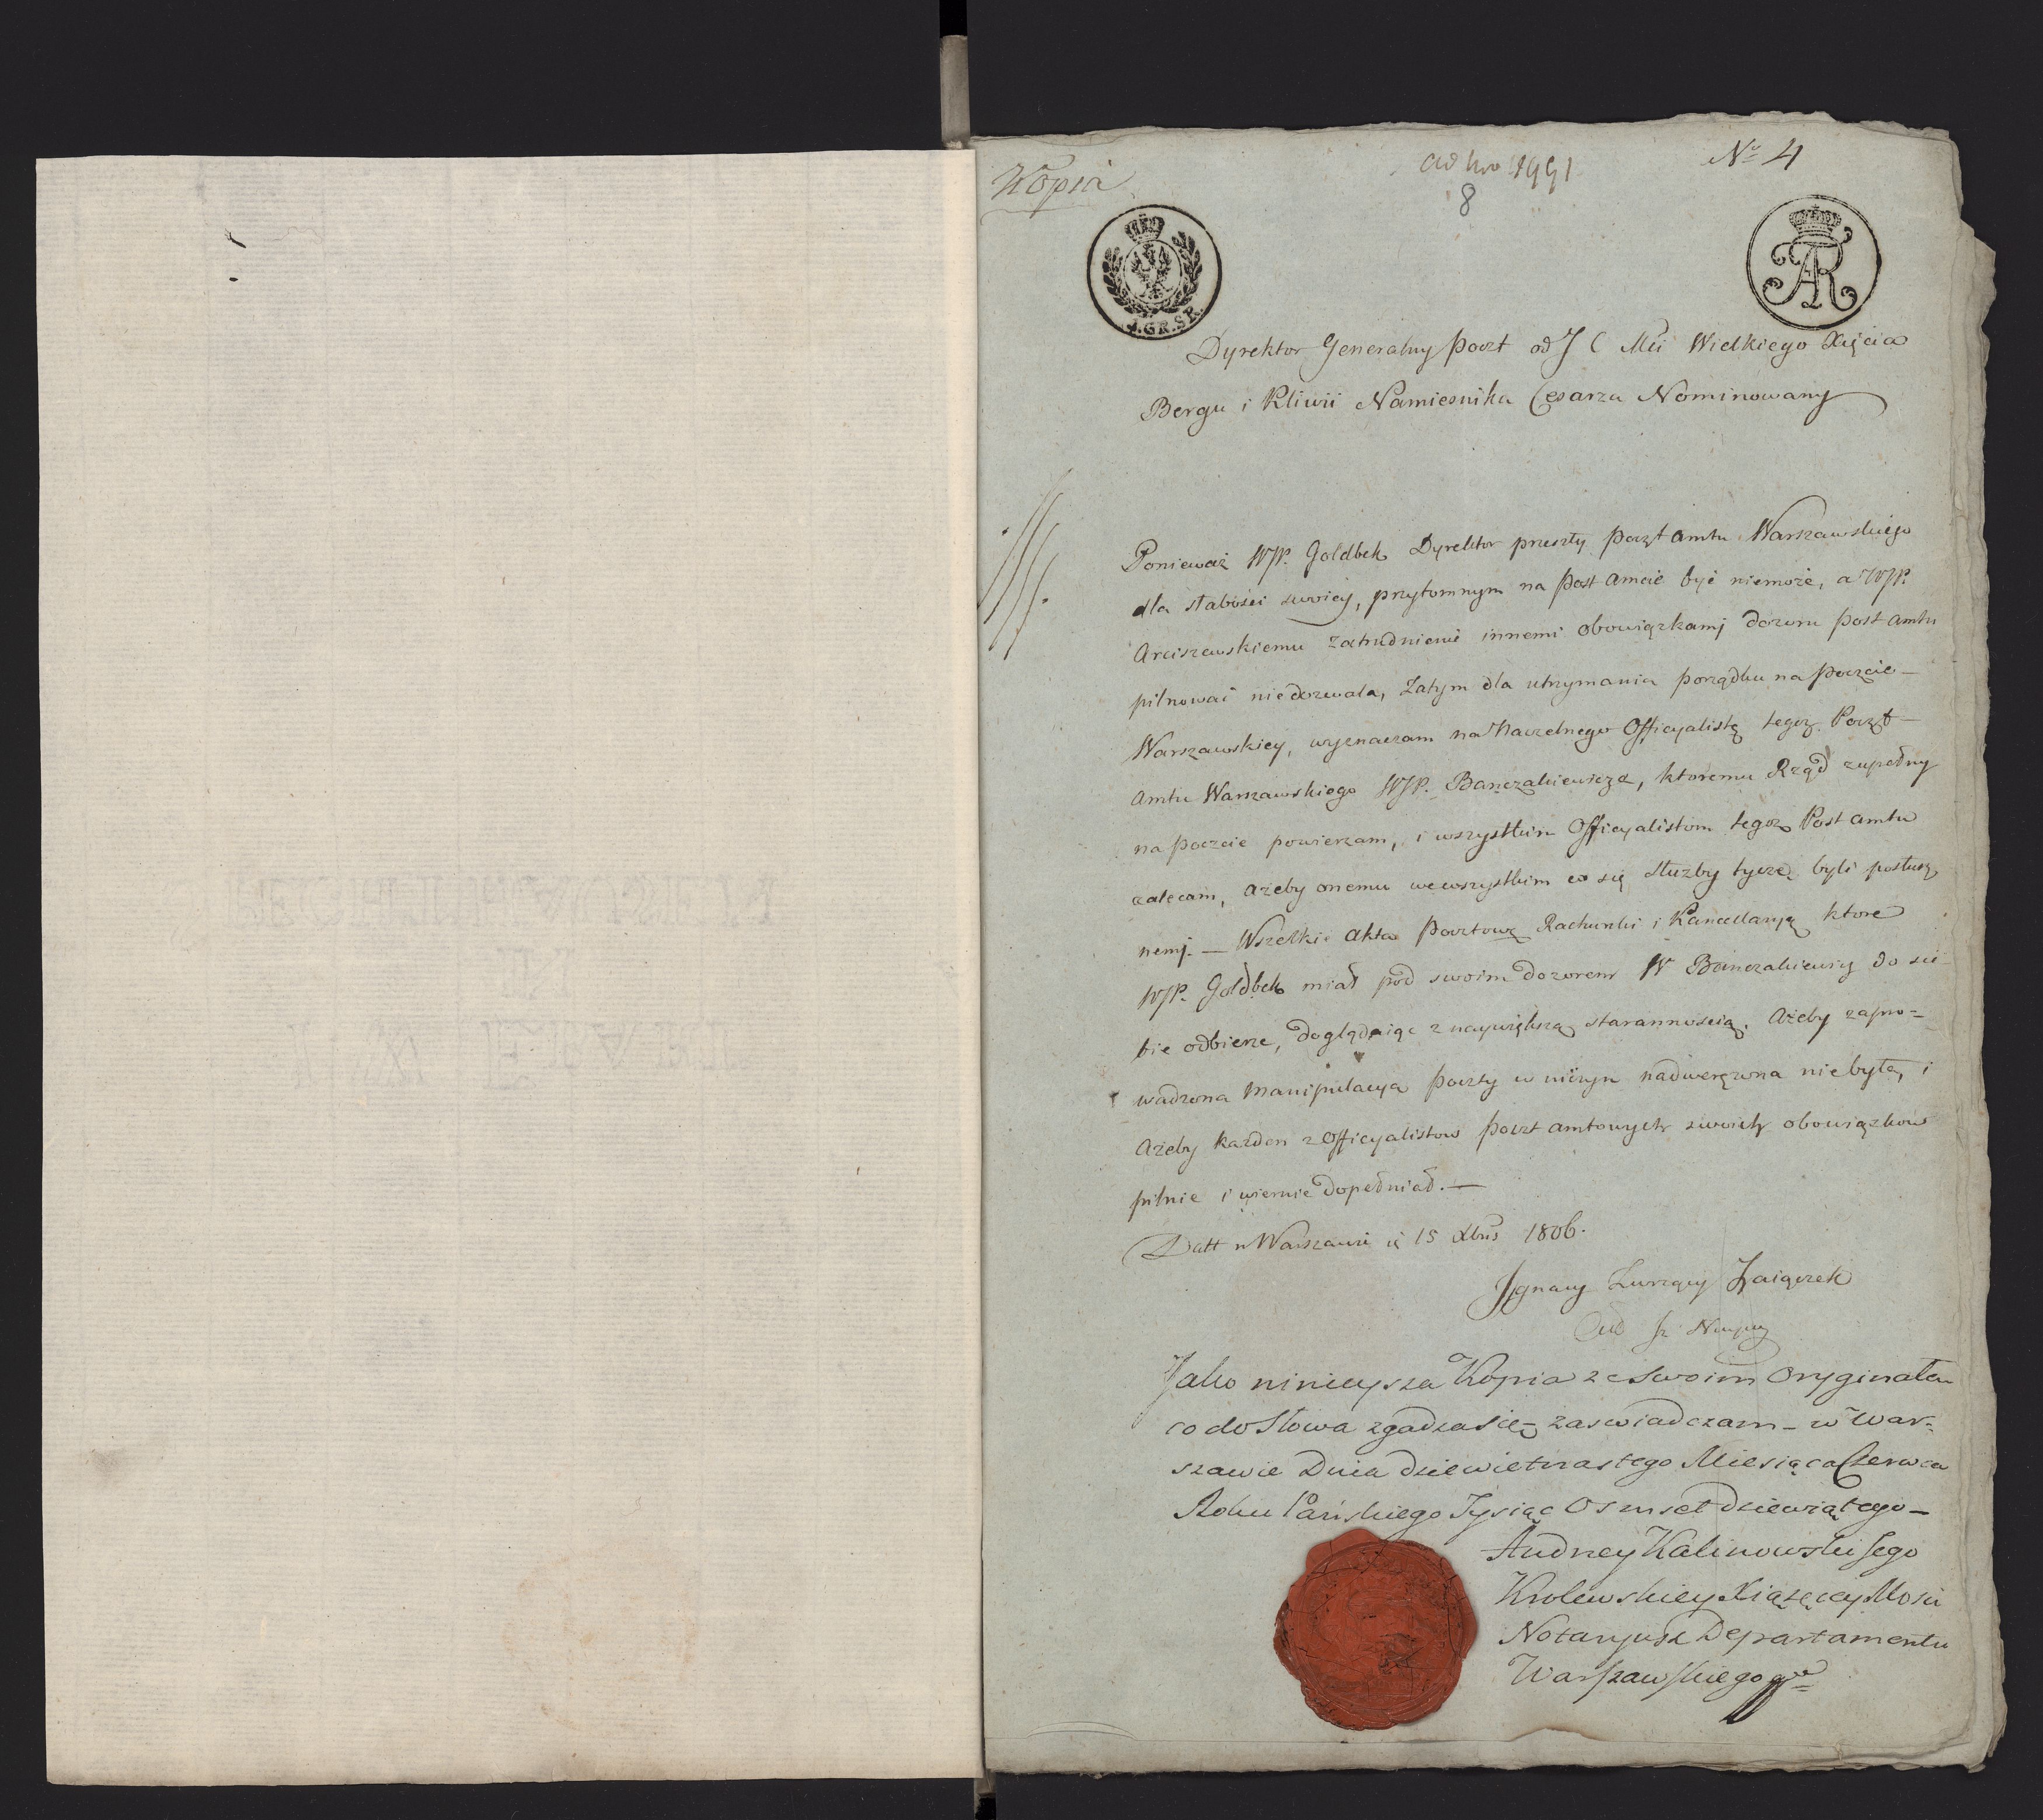 Kopia
ad Nro 1991
8
No 4
J.GR.SR.
AR
Dyrektor Generalny Poczt od J C Mci Wielkiego Xięcia
Bergu i Kliwii Namiesnika Cesarza Nominowany
Ponieważ WJP. Goldbek Dyrektor przeszły Poczt amtu Warszawskiego
dla słabości swoiey, przytomnym na Post amcie być niemoże, a WJP.
Arciszewskiemu zatrudnienie innemi obowiązkami dozoru Post amtu
pilnować niedozwala, Zatym dla utrzymania porządku na Poczcie –
Warszawskiey, wyznaczam na Naczelnego Officyalistę tegoz Poczt –
amtu Warszawskiego WJP. Banczakiewicza, ktoremu Rząd zupełny
na Poczcie powierzam, i wszystkim Officyalistom tegoz Post amtu
zalecam, ażeby onemu wewszystkim co się służby tycze, byli posłusz
nemi. — Wszelkie akta Pocztowe Rachunki i Kancellaryą ktore
WJP. Goldbek miał pod swoim dozorem W Banczakiewicz do sie-
bie odbierze, doglądaiąc z naywiększą starannością, Ażeby zapro=
wadzona Manipulacya Poczty w niczym nadweręzona niebyła, i
Ażeby każden z Officyalistow Poczt amtowych swoich obowiązkow
pilnie i wiernie dopełniał. —
Datt w Warszawie d 15 Xbris 1806.
Ignacy Zaiączek
Jako ninieysza Kopia ze swoim Oryginałem
co do Słowa zgadza się zaswiadczam – w War=
szawie Dnia dziewietnastego Miesiąca Czerwca
Roku Pańskiego Tysiąc Osmset dziewiątego –
Andrzey Kalinowski Jego
Krolewskiey Xiążęcey Mosci
Notaryusz Departamentu
Warszawskiego